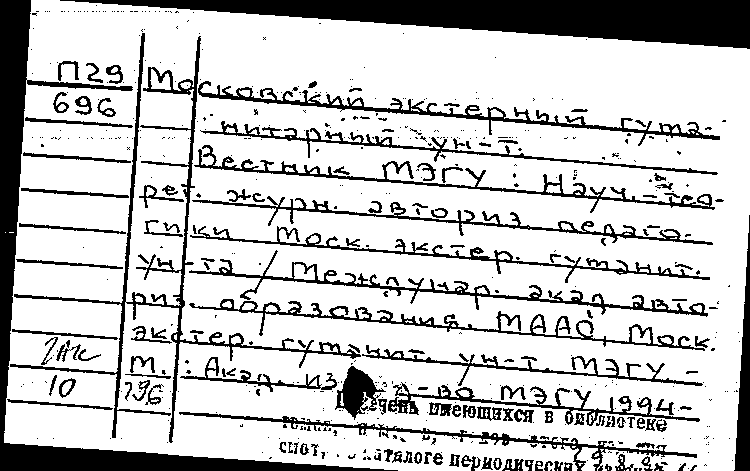 П29
696
Московский экстерный гума-
нитарный ун-т.
Вестник МЭГУ : Науч.-тео-
рет. журн. авториз. педаго-
гики / Моск. экстер. гуманит.
ун-та / Междунар. акад. авто-
риз. образования. МААО, Моск.
экстер. гуманит. ун-т. МЭГУ. -
М. : Акад. из-во МЭГУ 1994-
10 796
имеющихся в библиотеке
этого
смот, каталоге периодических